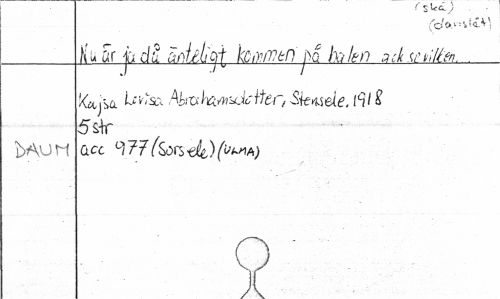 (skä)
(danslåt)
Nu är ja då änteligt kommen på balen ack se vilken...
Kajsa Lovisa Abrahamsdotter, Stensele. 1918
5 str
DAUM acc 977 (Sorsele) (ULMA)